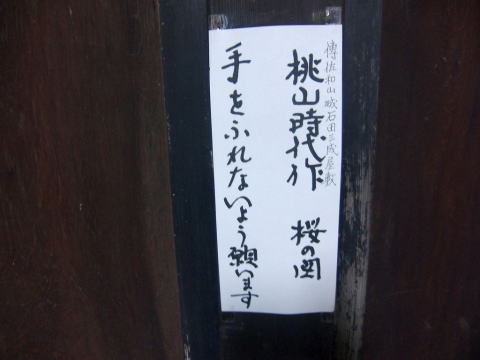 傳佐和山城石田三成屋敷
桃山時代作 桜の図
手をふれないよう願います